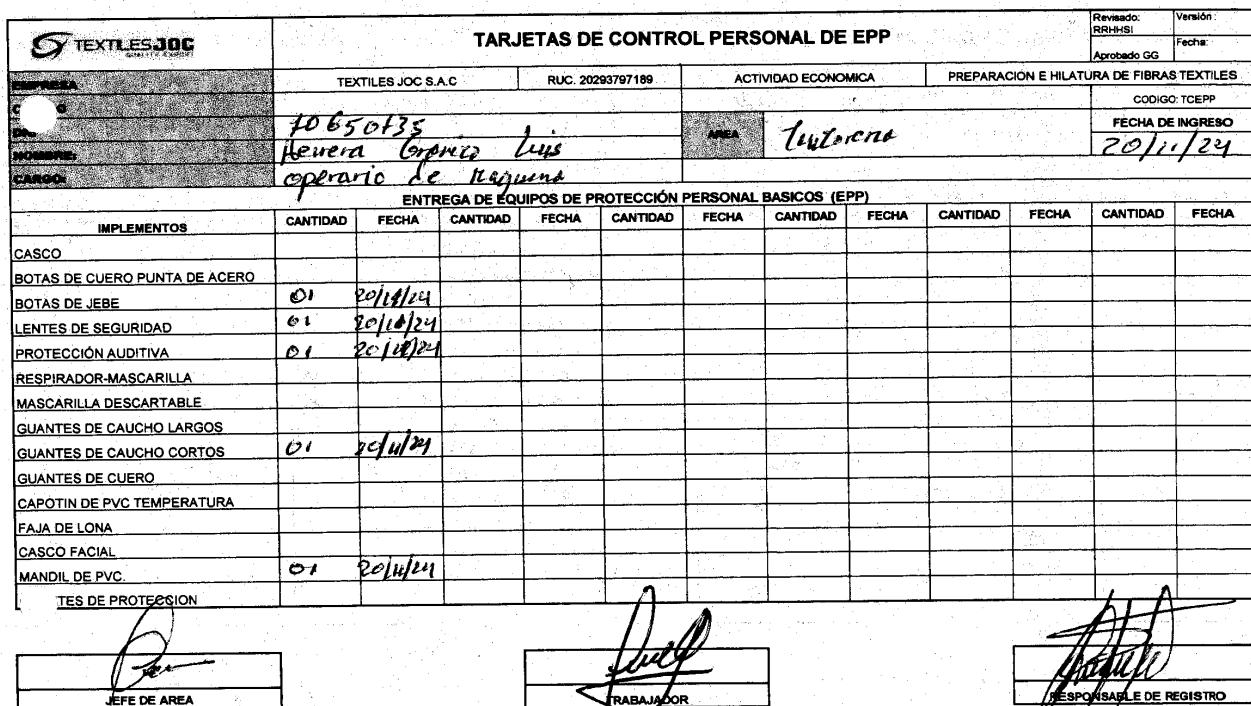 TEXTILES JOC
QUALITY EXPORT
TARJETAS DE CONTROL PERSONAL DE EPP
Revisado: RRHHSI
Versión:
Aprobado GG
Fecha:
EMPRESA
TEXTILES JOC S.A.C
RUC. 20293797189
ACTIVIDAD ECONOMICA
PREPARACION E HILATURA DE FIBRAS TEXTILES
CODIGO: TCEPP
10650735
AREA
Tintoreria
FECHA DE INGRESO
NOMBRE:
Herrera Luis
20/11/24
CARGO:
operario de Maquina
ENTREGA DE EQUIPOS DE PROTECCIÓN PERSONAL BASICOS (EPP)
IMPLEMENTOS CANTIDAD FECHA CANTIDAD FECHA CANTIDAD FECHA CANTIDAD FECHA CANTIDAD FECHA CANTIDAD FECHA
CASCO
BOTAS DE CUERO PUNTA DE ACERO
BOTAS DE JEBE 01 20/11/24
LENTES DE SEGURIDAD 01 20/11/24
PROTECCIÓN AUDITIVA 01 20/11/24
RESPIRADOR-MASCARILLA
MASCARILLA DESCARTABLE
GUANTES DE CAUCHO LARGOS
GUANTES DE CAUCHO CORTOS 01 20/11/24
GUANTES DE CUERO
CAPOTIN DE PVC TEMPERATURA
FAJA DE LONA
CASCO FACIAL
MANDIL DE PVC. 01 20/11/24
TES DE PROTECCION
JEFE DE AREA
TRABAJADOR
RESPONSABLE DE REGISTRO